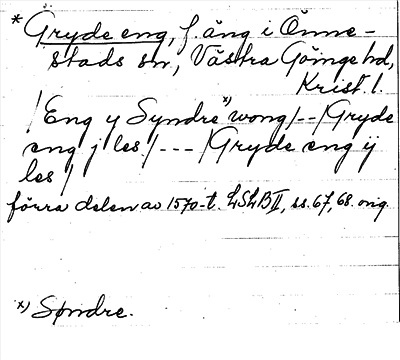 * Gryde eng, f. äng i Önne-
stads sn, Västra Göinge hd,
Krist. l.
/Eng y Syndre x) wong/--/Gryde
eng j les/---/Gryde eng ij
les/
förra delen av 1570-t. LSLB II, ss. 67, 68. orig
x) Søndre.